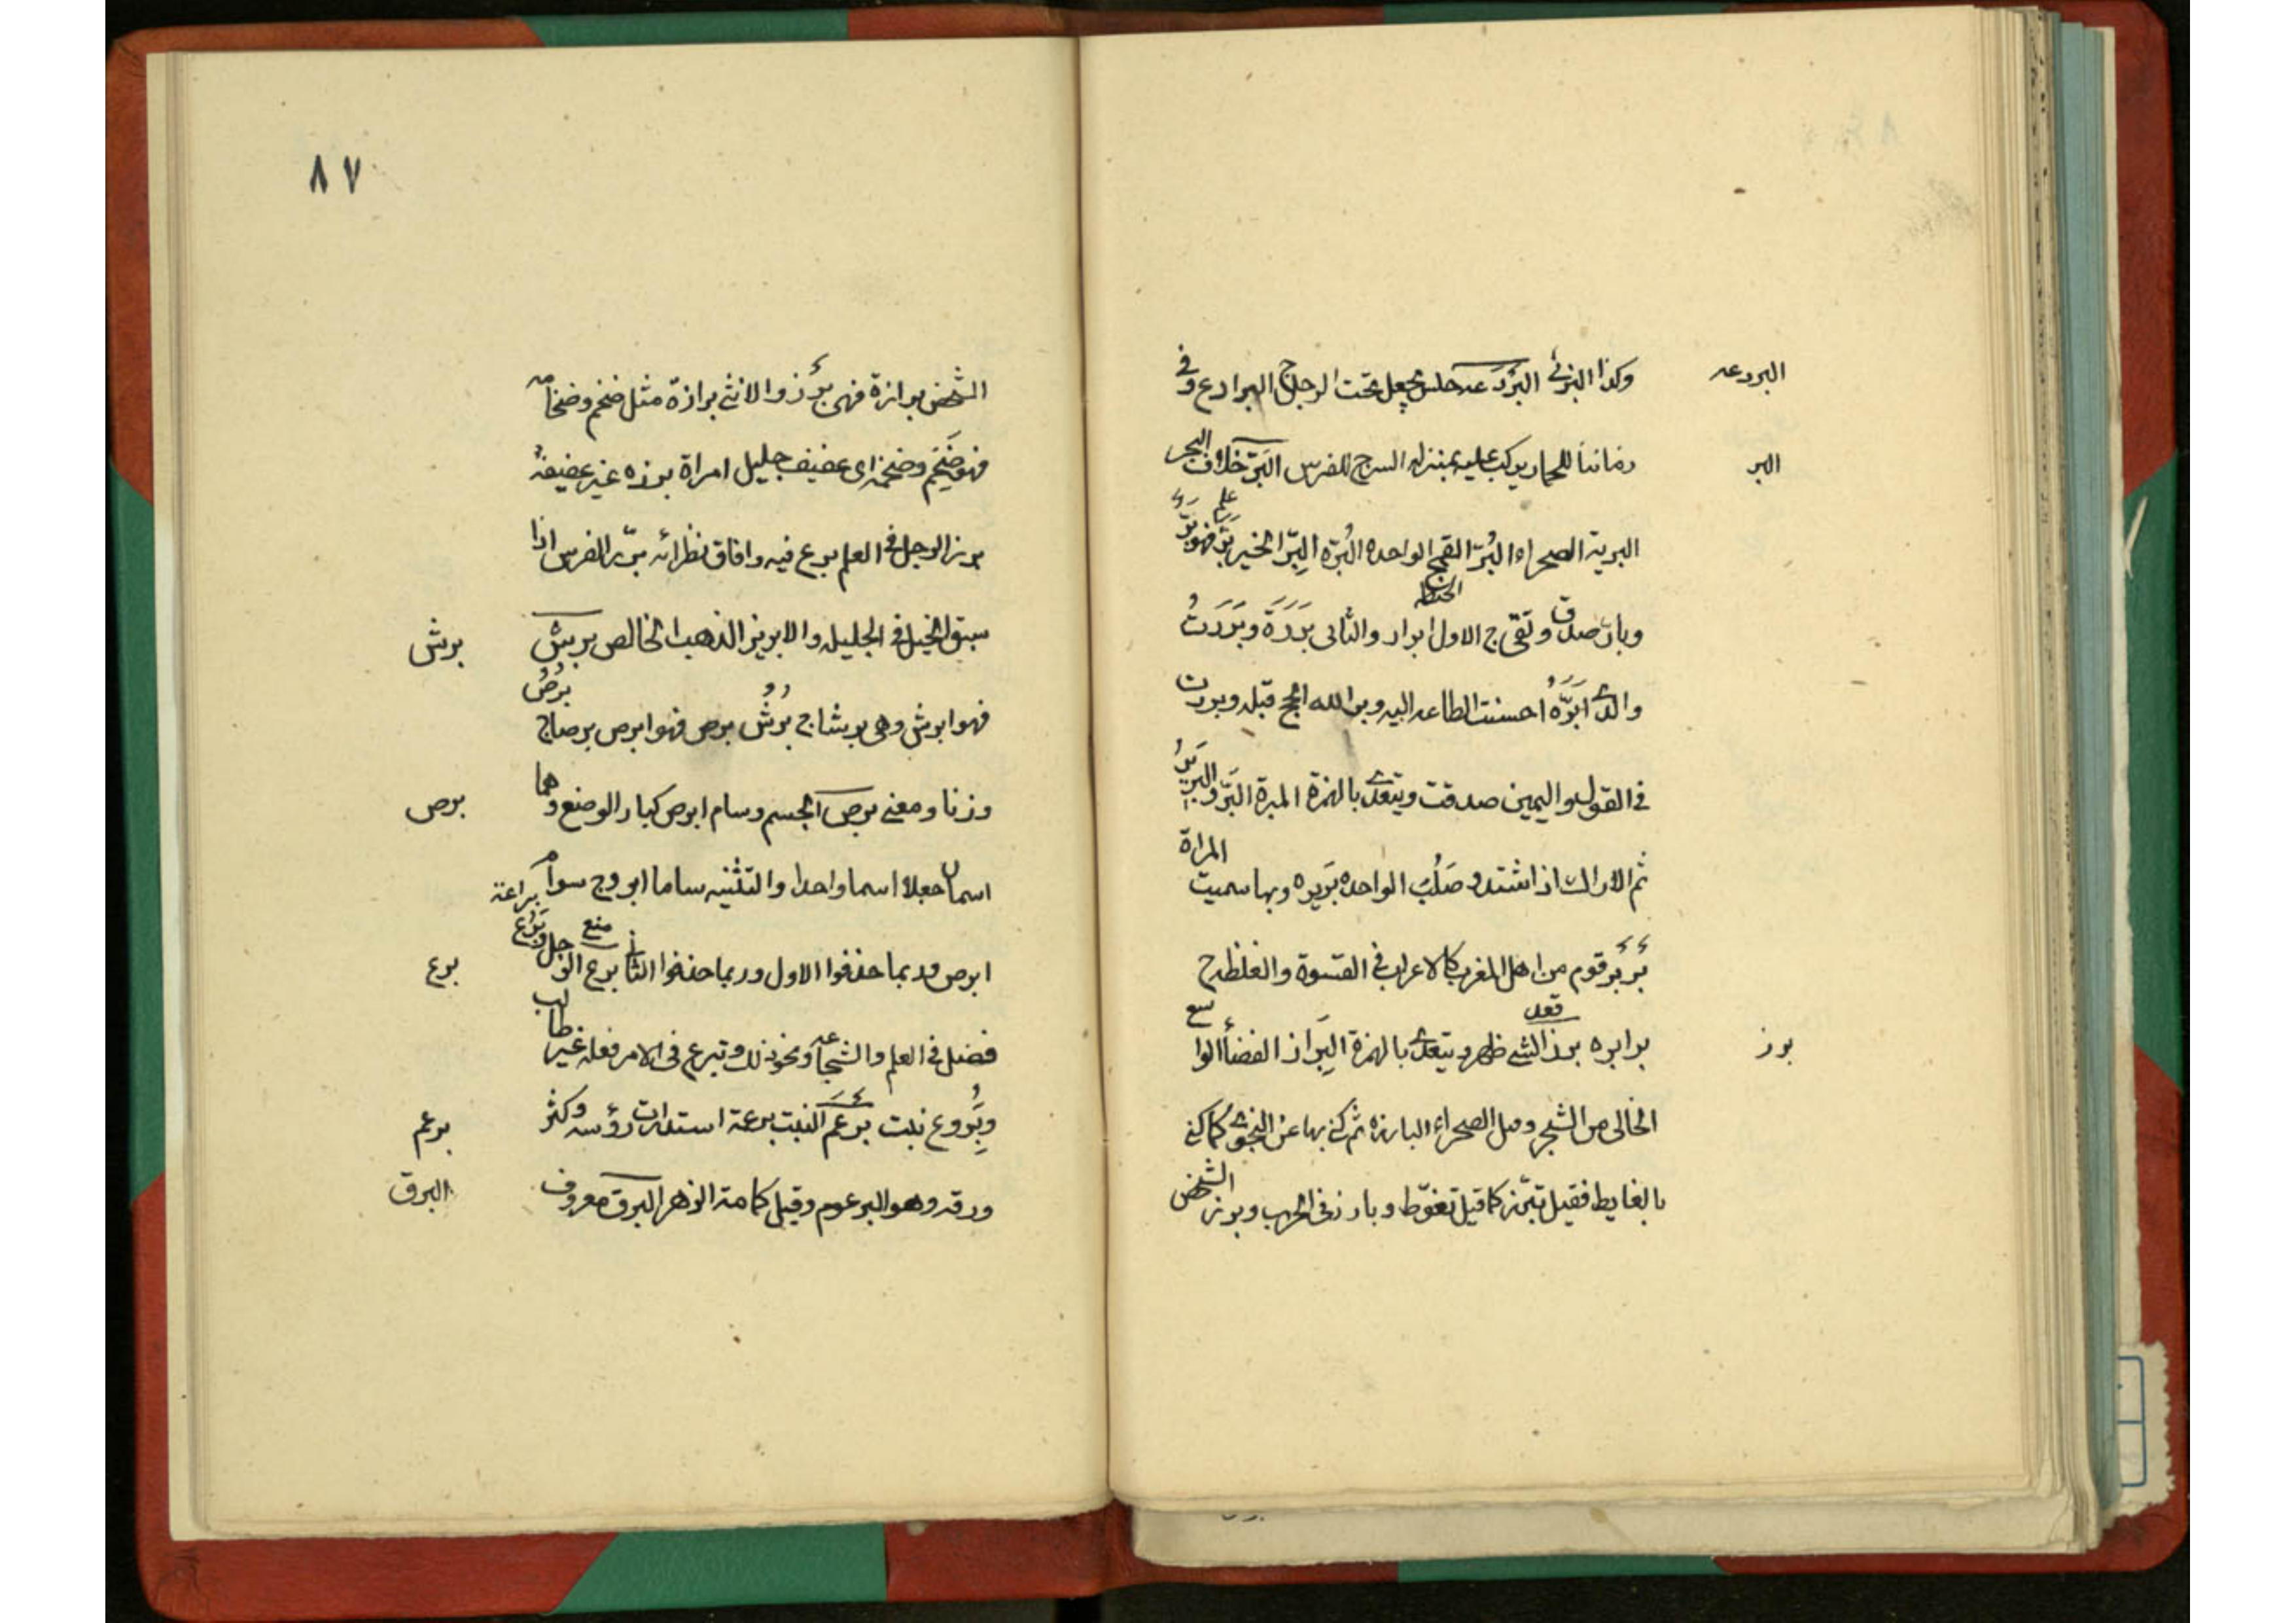 البردعه
وكذا البرنى البردعه حلس يجعل تحت الرحل ج البرادع وفى
البر
زماننا للحمار يركب عليه بمنزله السرج للفرس البر خلاف البحر
البرية الصحراء البُرّ القمح الواحده البُرّه البِرّ الخير بَرّ فهو بَرّ
وبارّ صدق وتقى ج الاول ابرار والثانى بَرَرَة وبَرَرتُ
والدى ابَرُّهُ احسنت الطاعه اليه وبر الله الحج قبله وبررت
فى القول واليمين صدقت ويتعدى بالهمزة المبرة البَرّ والبرير
ثمر الاراك اذا اشتد وصَلُبَ الواحده بَريره وبها سميت المراة
بَربَر قوم من اهل المغرب كالاعراب فى القسوة والغلظه ج
برز
برابره برز الشى ظهر ويتعدى بالهمزة البَراز الفضأ الواسع
الخالى من الشجر وميل الصحراء البارزه ثم كنى بها عن النجو كما كنى
بالغايط فقيل تبرّز كما قيل تغوّط وبارز فى الحرب وبرز الشخص
٨٧
الشخص برازة فهو برز والانثى برازة مثل ضخم وضخامة
فهو ضخم وضخمه اى عفيف جليل امراة برزه غير عفيفه
برز الرجل فى العلم برع فيه وافاق نظرائه برّز الفرس اذا
سبق الخيل فى الجليله والابريز الذهب الخالص برش
برش
فهو ابرش وهى برشا ج بُرْشُ برص فهو ابرص برصا ج بُرْصُ
وزنا ومعنى برص الجسم وسام ابرص كبار الوضع وهما
برص
اسمان جعلا اسما واحدا والتثنيه ساما ابرص ج سوام
ابرص وربما حذفوا الاول وربما حذفوا الثانى برع الرجل وبَرُع براعة
برع
فضل فى العلم والشجاعه ونحو ذلك وتبرع فى الامر فعله غير طالب
وبَروع بنت برعم النبت برعمة استدارت رؤسه وكثر
برعم
ورقه وهو البرعوم وقيل كمامة الزهر البرق معروف
البرق